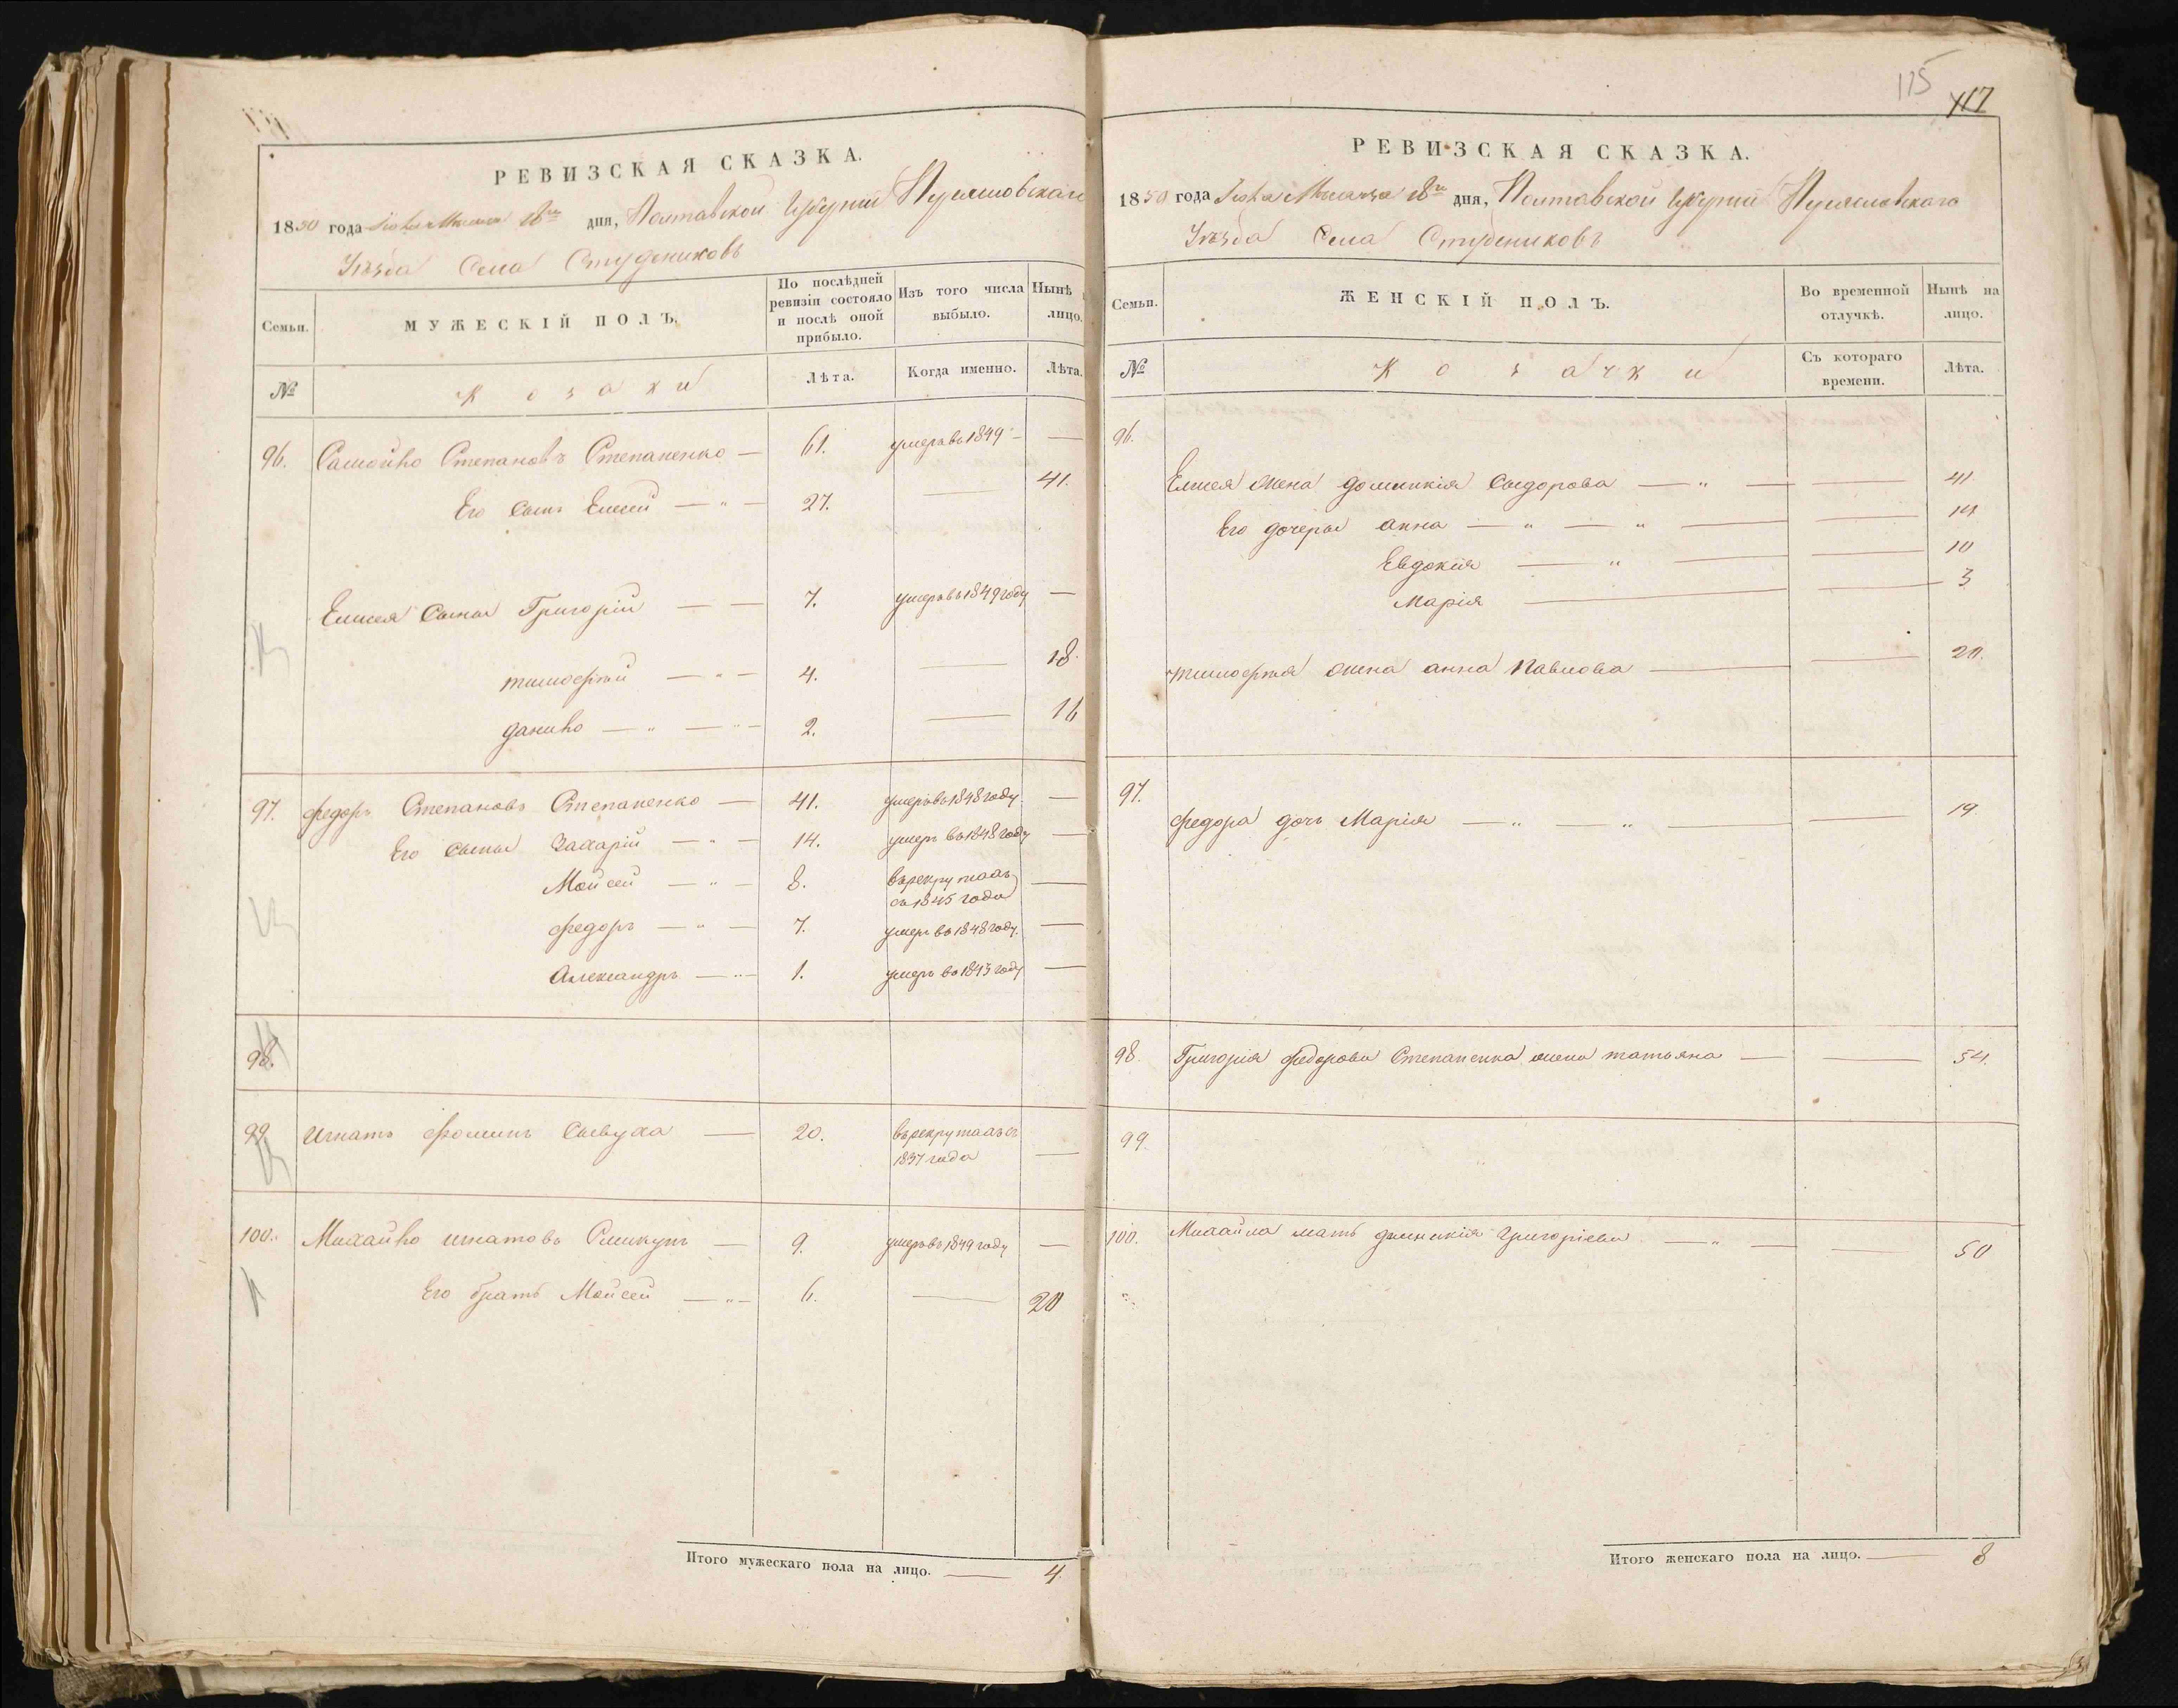 РЕВИЗСКАЯ СКАЗКА.
1850 года дня, Полтавской Губерніи
Уѣзда Села Студениковъ
Семьи.
МУЖЕСКІЙ ПОЛЪ.
По послѣдней ревизіи состояло и послѣ оной прибыло.
Изъ того числа выбыло.
Нынѣ лицо.
№
Козаки
Лѣта.
Когда именно.
Лѣта.
96. Самойло Степановъ Степаненко — 61. умеръ въ 1849 — —
Его сынъ Елисей — " — 27. — 41.
Елисея сыны Григорій — — 7. умеръ въ 1849 году —
тимофѣй — " — 4. — 18.
данило — " — " — 2. — 16
97. федоръ Степановъ Степаненко — 41. умеръ въ 1848 году. —
Его сыны Захарій — " — 14. умеръ въ 1848 году —
Мойсей — " — 8. въ рекрутахъ —
съ 1845 года
федоръ — " — 7. умеръ въ 1848 году. —
Александръ — " — 1. умеръ въ 1843 году —
98.
99. Игнатъ фоминъ Сывуха — 20. въ рекрутахъ съ
1837 года —
100. Михайло игнатовъ — 9. умеръ въ 1849 году —
Его братъ Мойсей — " — 6. — 20
Итого мужескаго пола на лицо. — 4.
115
117
РЕВИЗСКАЯ СКАЗКА.
1850 года дня, Полтавской Губерніи
Уѣзда Села Студениковъ
Семьи.
ЖЕНСКІЙ ПОЛЪ.
Во временной отлучкѣ.
Нынѣ на лицо.
№
Козачки
Съ котораго времени.
Лѣта.
96.
Елисея жена домникія Сидорова — " — — 41
Его дочери анна — " — " — — 14
Евдокія — " — — 10
Марія — — 3
тимофѣя жена анна Павлова — — 20.
97.
федора дочь Марія — " — " — — 19.
98. Григорія федорова Степаненка жена татьяна — — 54.
99.
100. Михайла мать домникія Григоріева — " — — 50
Итого женскаго пола на лицо. — 8